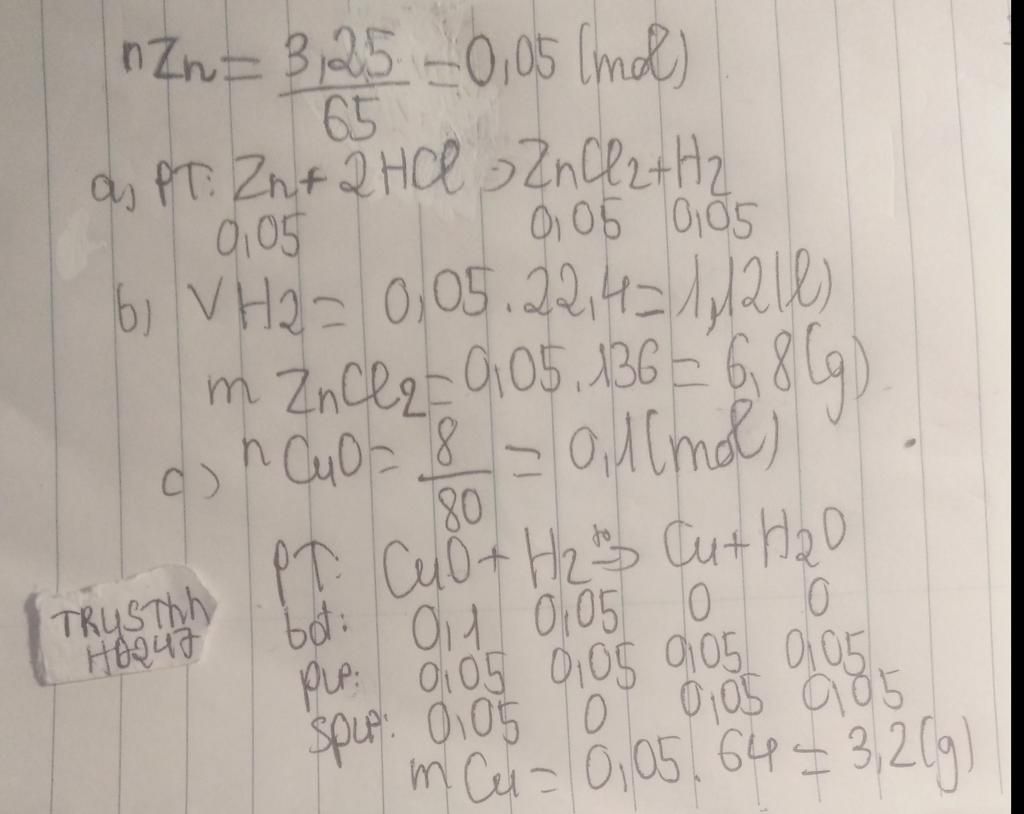 nZn = 3,25/65 = 0,05 (mol)
a, PT: Zn + 2HCl → ZnCl2 + H2
0,05 0,05 0,05
b) VH2 = 0,05 . 22,4 = 1,12(l)
m ZnCl2 = 0,05 . 136 = 6,8 (g)
c) n CuO = 8/80 = 0,1 (mol)
PT: CuO + H2 t° → Cu + H2O
bđ: 0,1 0,05 0 0
pư: 0,05 0,05 0,05 0,05
spư: 0,05 0 0,05 0,05
m Cu = 0,05 . 64 = 3,2 (g)
TRUSThh
HĐ247